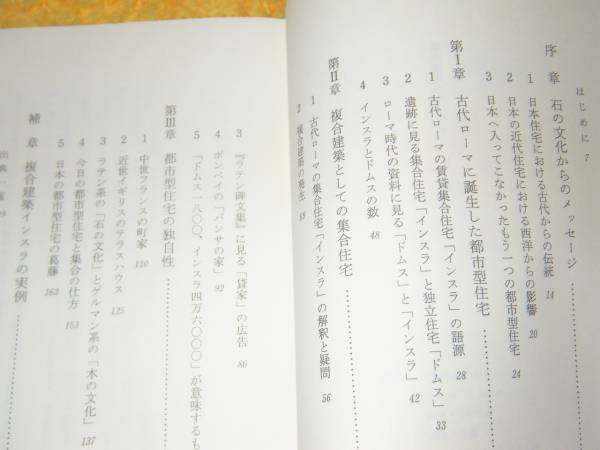 はじめに 7
序章 石の文化からのメッセージ
1 日本住宅における古代からの伝統 14
2 日本の近代住宅における西洋からの影響 20
3 日本へ入ってこなかったもう一つの都市型住宅 24
第Ⅰ章 古代ローマに誕生した都市型住宅
1 古代ローマの賃貸集合住宅「インスラ」の語源 28
2 遺跡に見る集合住宅「インスラ」と独立住宅「ドムス」 33
3 ローマ時代の資料に見る「ドムス」と「インスラ」 42
4 インスラとドムスの数 48
第Ⅱ章 複合建築としての集合住宅
1 古代ローマの集合住宅「インスラ」の解釈と疑問 56
2 複合建築の発生 68
3 『ラテン碑文集』に見る「貸家」の広告 86
4 ポンペイの「パンサの家」 92
5 「ドムス一八〇〇、インスラ四万六〇〇〇」が意味するも
第Ⅲ章 都市型住宅の独自性
1 中世フランスの町家 110
2 近世イギリスのテラスハウス 125
3 ラテン系の「石の文化」とゲルマン系の「木の文化」 137
4 今日の都市型住宅と集合の仕方 153
5 日本の都市型住宅の葛藤 162
補章 複合建築インスラの実例